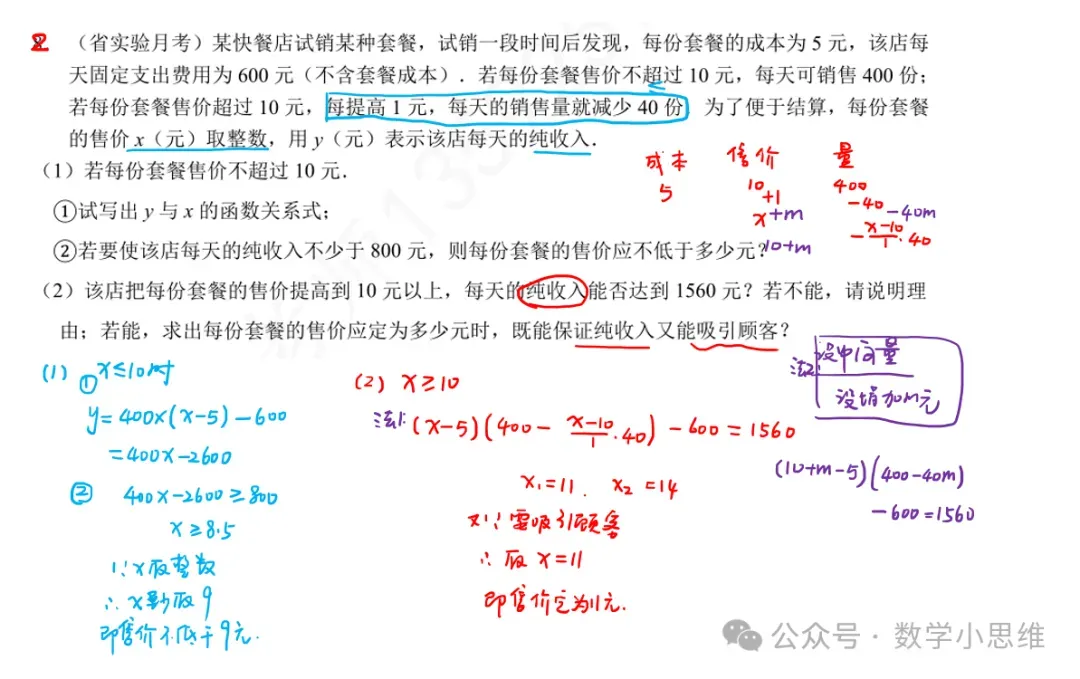 （省实验月考）某快餐店试销某种套餐，试销一段时间后发现，每份套餐的成本为 5 元，该店每
天固定支出费用为 600 元（不含套餐成本）．若每份套餐售价不超过 10 元，每天可销售 400 份；
若每份套餐售价超过 10 元，每提高 1 元，每天的销售量就减少 40 份 为了便于结算，每份套餐
的售价 x（元）取整数，用 y（元）表示该店每天的纯收入．
（1）若每份套餐售价不超过 10 元．
①试写出 y 与 x 的函数关系式；
②若要使该店每天的纯收入不少于 800 元，则每份套餐的售价应不低于多少元？
（2）该店把每份套餐的售价提高到 10 元以上，每天的纯收入能否达到 1560 元？若不能，请说明理
由；若能，求出每份套餐的售价应定为多少元时，既能保证纯收入又能吸引顾客？
成本 售价 量
5 10 400
+1 -40
x+m -40m
-x-10/1·40
10+m
(1) ① x≤10时
y=400x(x-5)-600
=400x-2600
② 400x-2600≥800
x≥8.5
∵x取整数
∴x最少取9
即售价不低于9元.
(2) x≥10
法1: (x-5)(400-x-10/1·40)-600=1560
x₁=11. x₂=14
又∵需吸引顾客
∴取 x=11
即售价定为11元.
法2: 设中间量
设增加m元
(10+m-5)(400-40m)
-600=1560
公众号·数学小思维